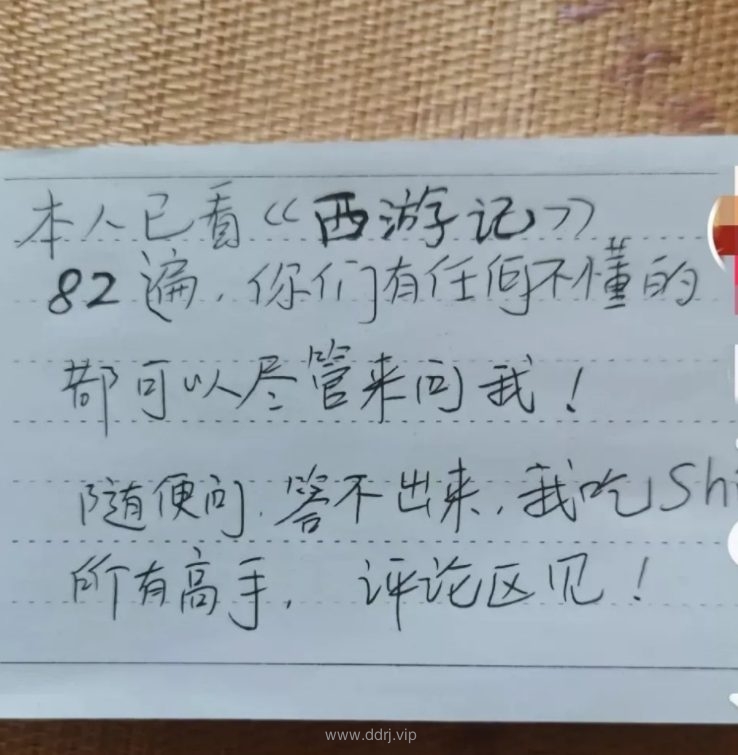 本人已看《西游记》
82遍，你们有任何不懂的
都可以尽管来问我！
随便问，答不出来，我吃Sh
所有高手，评论区见！
www.ddrj.vip